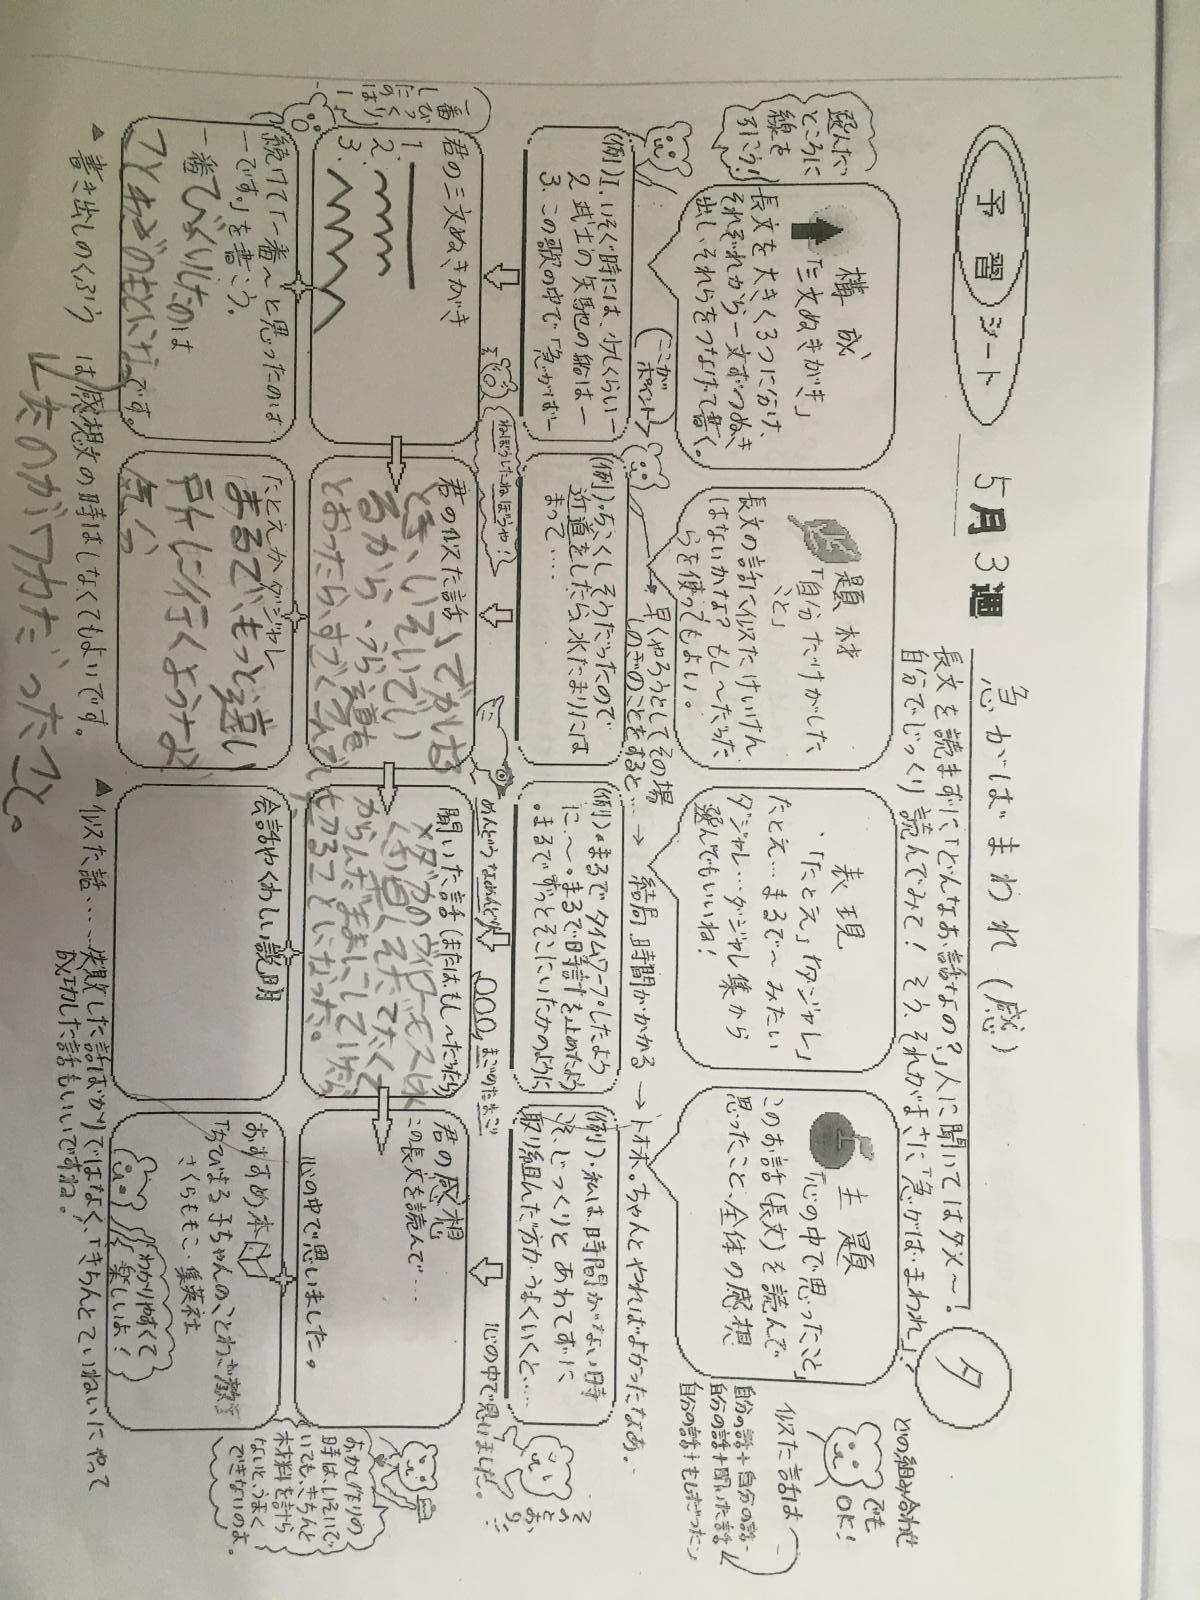 予習シート
5月3週
急がばまわれ(感)
夕
長文を読まずに「どんなお話なの?」人に聞いてはダメ〜!
自分でじっくり読んでみて!そう、それがまさに「急がば・まわれ」?
選んだ
ところに
線を
引こう!
構成
「三文ぬきがき」
長文を大きく3つに分け、
それぞれから一文ずつぬき
出し、それらをつなげて書く。
ここが
ポイント
題材
「自分だけがした
こと」
長文の話で似たけいけん
はないかな?もし〜だった
らを使ってもよい。
表現
「たとえ」「ダジャレ」
たとえ…まるで〜みたい
ダジャレ…ダジャレ集から
選んでもいいね!
主題
「心の中で思ったこと」
このお話(長文)を読んで
思ったこと、全体の感想
どの組み合わせ
でも
OK!
似た話は
自分の話+自分の話
自分の話+聞いた話
自分の話+もしだったら
早くやろうとしてその場
しのぎのことをすると… → 結局、時間がかかる → トホホ。ちゃんとやればよかったなあ。
(例)1、いそぐ時には、少しくらいー
2、武士の矢馳の船はー
3、この歌の中で「急がばー
(例)ちこくしそうだったので
近道をしたら、水たまりには
まって……
(例)・まるでタイムワープしたよう
に〜。まるで時計を止めたよう
。まるでずっとそこにいたかのように
(例)・私は時間がない時
こそ、じっくりとあわてずに
取り組んだ方がうまくいくと……
そのとおり!!
一番
びっくり
したのは
ー♪
ねぼうしたねぼうや?
めんどうなめんどり
まごのたまご
心の中で思いました。
君の三文ぬきがき
1.
2.
3.
君の似た話
いでかける
とき、いそいでい
るから、うら道を
とおったら、すごくこんで
聞いた話(またはもし〜だったら)
君の感想
この長文を読んで…
心の中で思いました。
おかし作りの
時は、いそいで
いても、きちんと
材料を計ら
ないと、うまく
できないのよ。
続けて「一番〜と思ったのは
ーです。」を書こう。
一番びっくりしたのは
です。
たとえかダジャレ
まるで、もっと遠い
所に行くような
気分
会話やくわしい説明
おすすめ本
「ちびまる子ちゃんのことわざ教室」
さくらももこ・集英社
わかりやすくて
楽しいよ!
▲書き出しのくふうは感想文の時はしなくてもよいです。
▲似た話……失敗した話ばかりではなく、「きちんとていねいにやって
成功した話もいいですね。